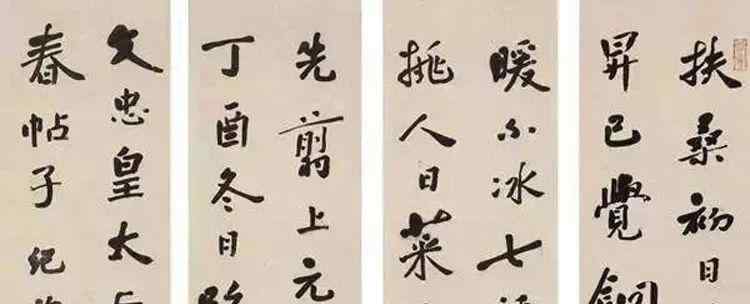 扶桑初日
昇已覺銅
暖不冰七
挑人日菜
先翦上元
丁酉冬日
文忠皇太
春帖子紀